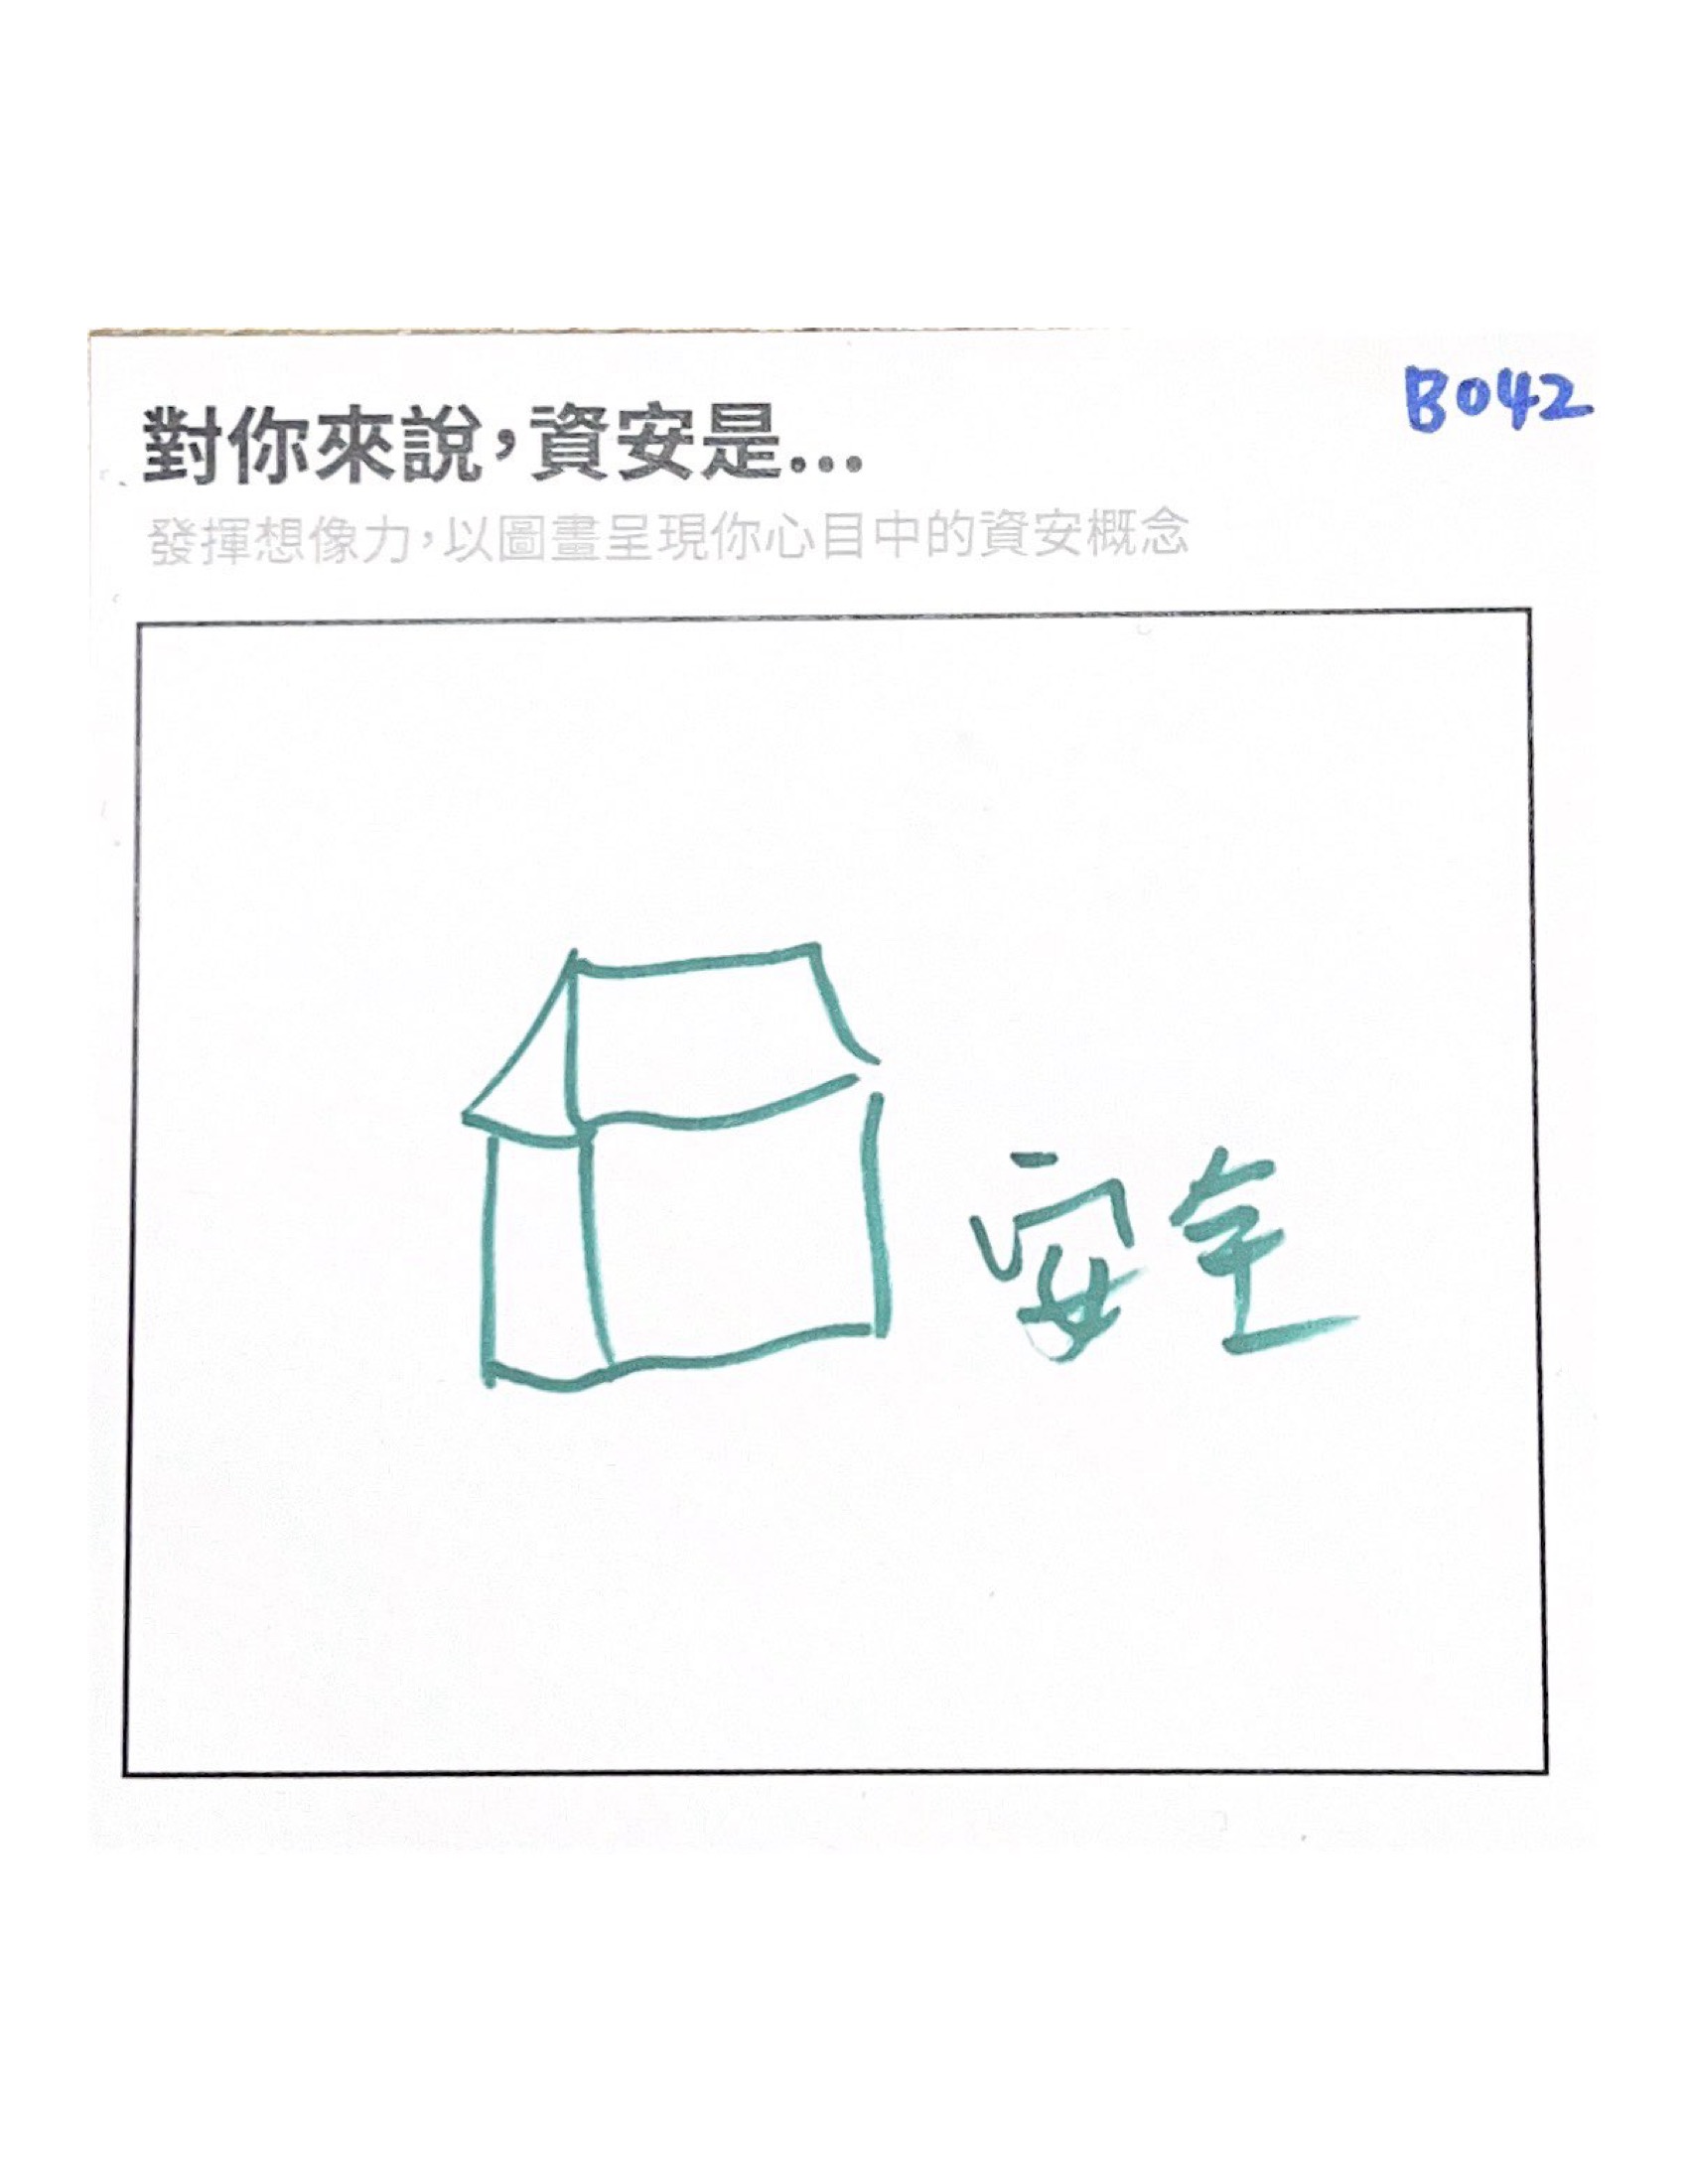 B042
對你來說，資安是...
發揮想像力，以圖畫呈現你心目中的資安概念
安全